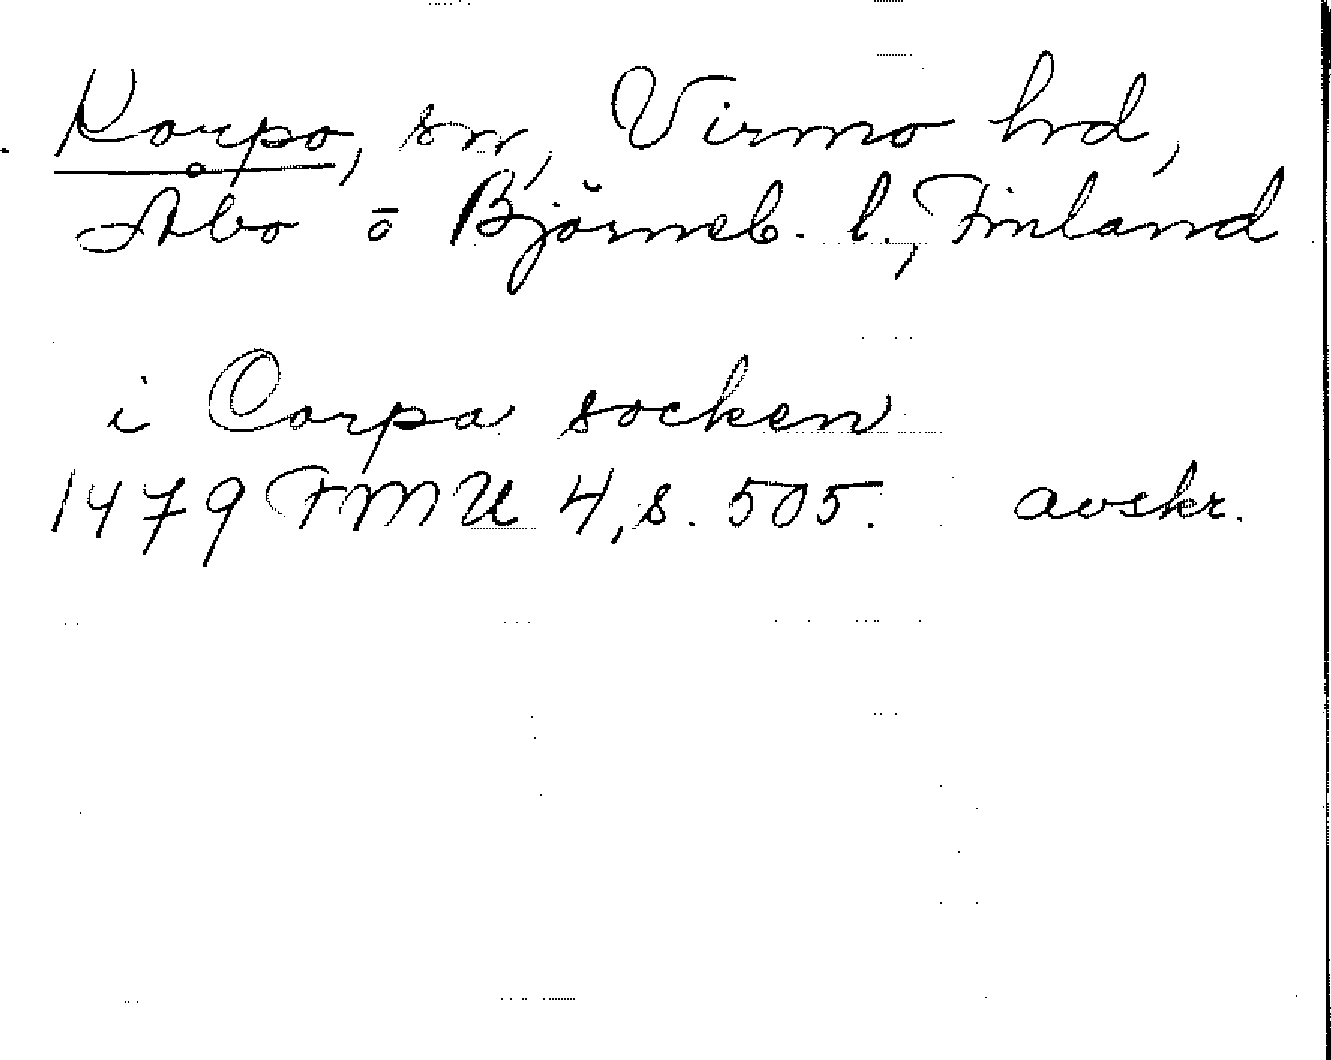 Korpo, sn, Virmo hrd,
Åbo o Björneb. l., Finland
i Corpa socken
1479 FMU 4, s. 505. avskr.